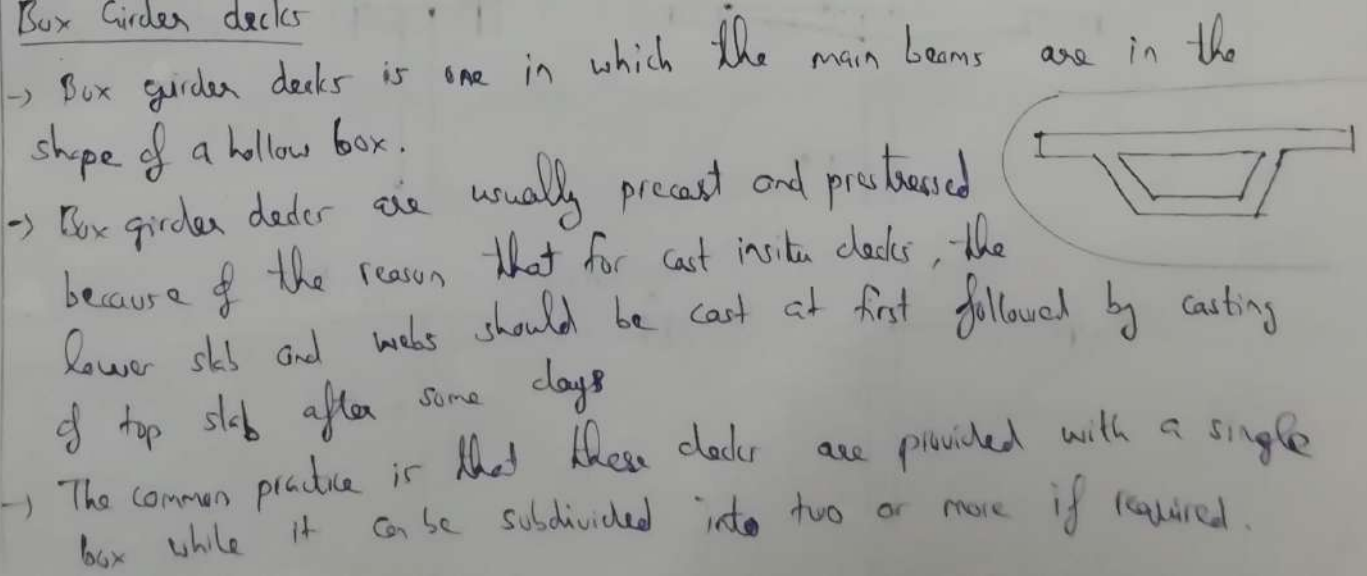 Box Girder decks
-> Box girder decks is one in which the main beams are in the
shape of a hollow box.
-> Box girder decks are usually precast and prestressed
because of the reason that for cast insitu decks, the
lower slab and webs should be cast at first followed by casting
of top slab after some days
-> The common practice is that these decks are provided with a single
box while it can be subdivided into two or more if required.